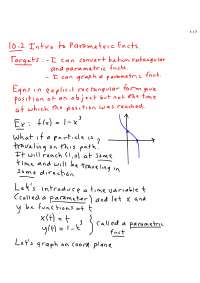 10.2 Intro to Parametric Functs
Targets: - I can convert between rectangular
and parametric functs.
- I can graph a parametric funct.
Eqns in explicit rectangular form give
position of an object but not the time
at which the position was reached.
Ex: f(x) = 1-x³
What if a particle is
traveling on this path?
It will reach (1,0) at some
time and will be traveling in
some direction
Let's introduce a time variable t
(called a parameter) and let x and
y be functions of t
x(t) = t
y(t) = 1-t³
Called a parametric
funct
Let's graph on coord plane